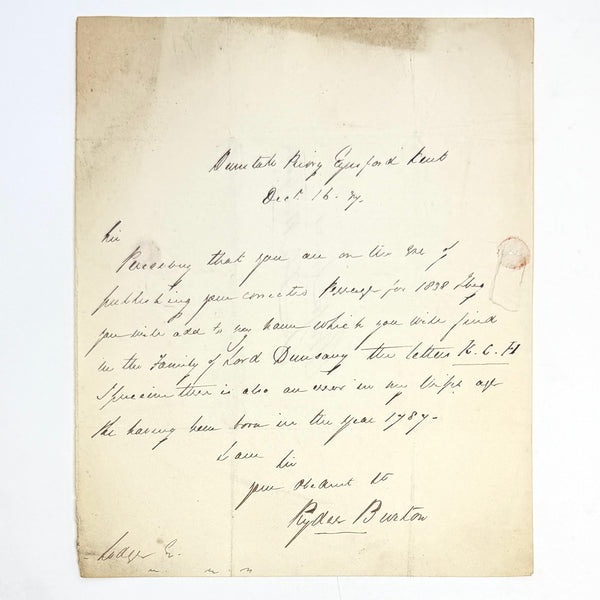 Eynsford Kent
Decr. 16. 37.
Sir
Perceiving that you are on the Eve of
publishing your corrected Peerage for 1838 I beg
you will add to my name which you will find
in the Family of Lord Dunsany the letters K. C. H
I perceive there is also an error in my Wife's age
she having been born in the year 1787-
I am
Sir
your Obedient St
Ryder Burton
Lodge Er.